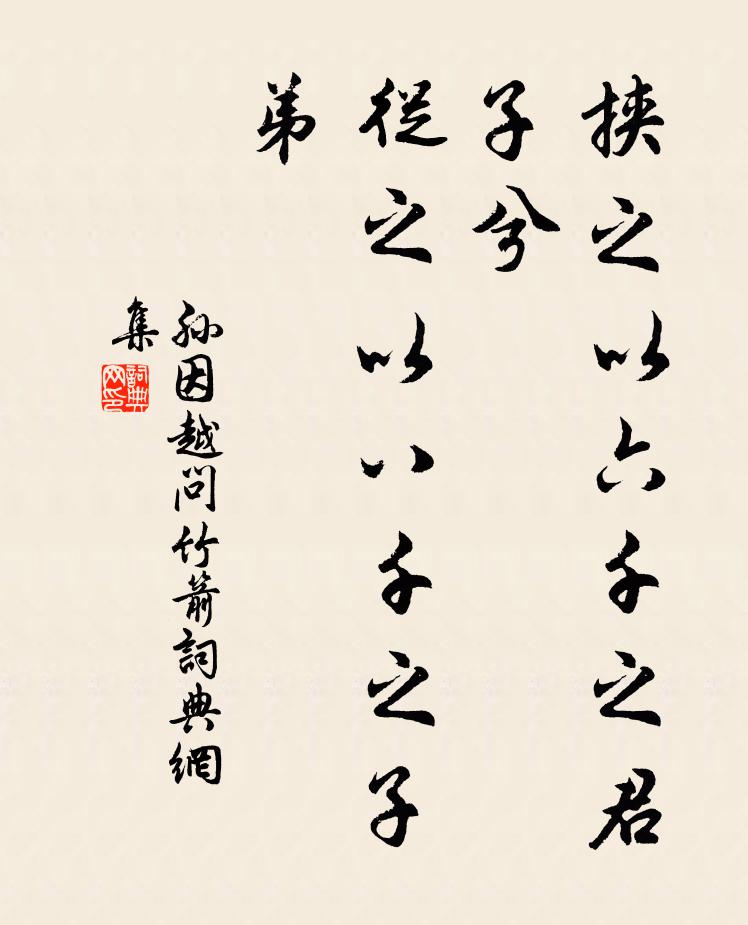 挟之以六千之君
子兮
從之以八千之子
弟
孙因越問竹箭詞典網
集
詞典
网印